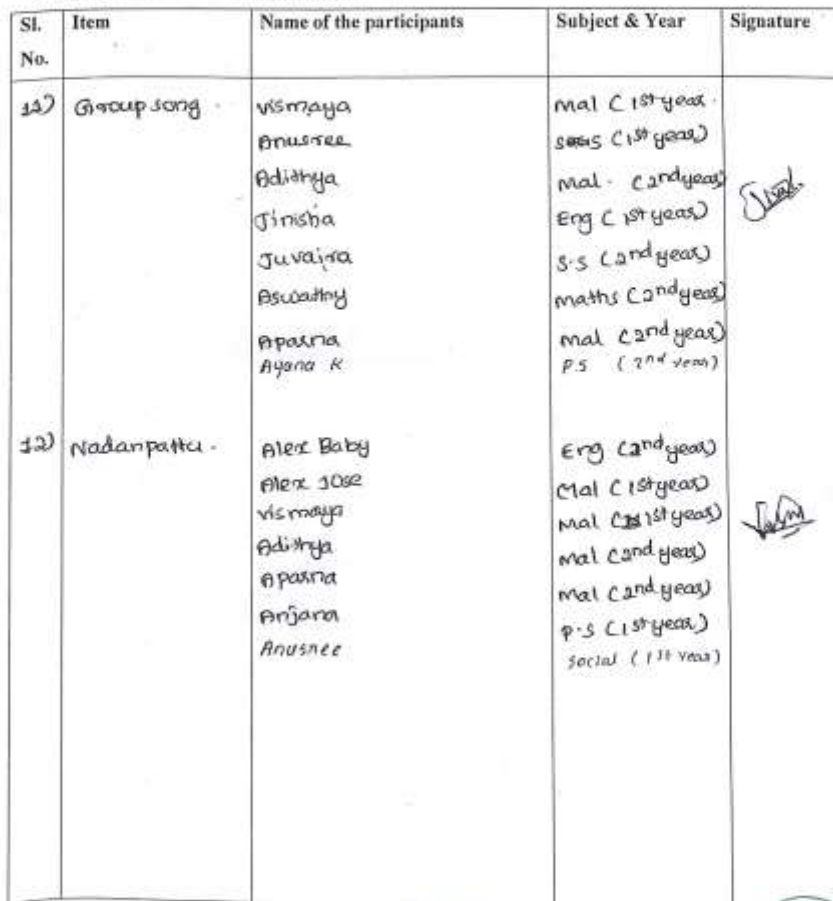 Sl. No. Item Name of the participants Subject & Year Signature
11) Group song . vismaya Mal (1st year .
Anusree (1st year)
Adithya Mal . (2nd year)
Jinisha Eng (1st year)
Juvaira S.S (2nd year)
Aswathy maths (2nd year)
Aparna Mal (2nd year)
Ayana K P.S (2nd year)
12) Nadanpattu . Alex Baby Eng (2nd year)
Alex Jose Mal (1st year)
vismaya Mal (1st year)
Adithya Mal (2nd year)
Aparna Mal (2nd year)
Anjana P.S (1st year)
Anusree Social (1st year)